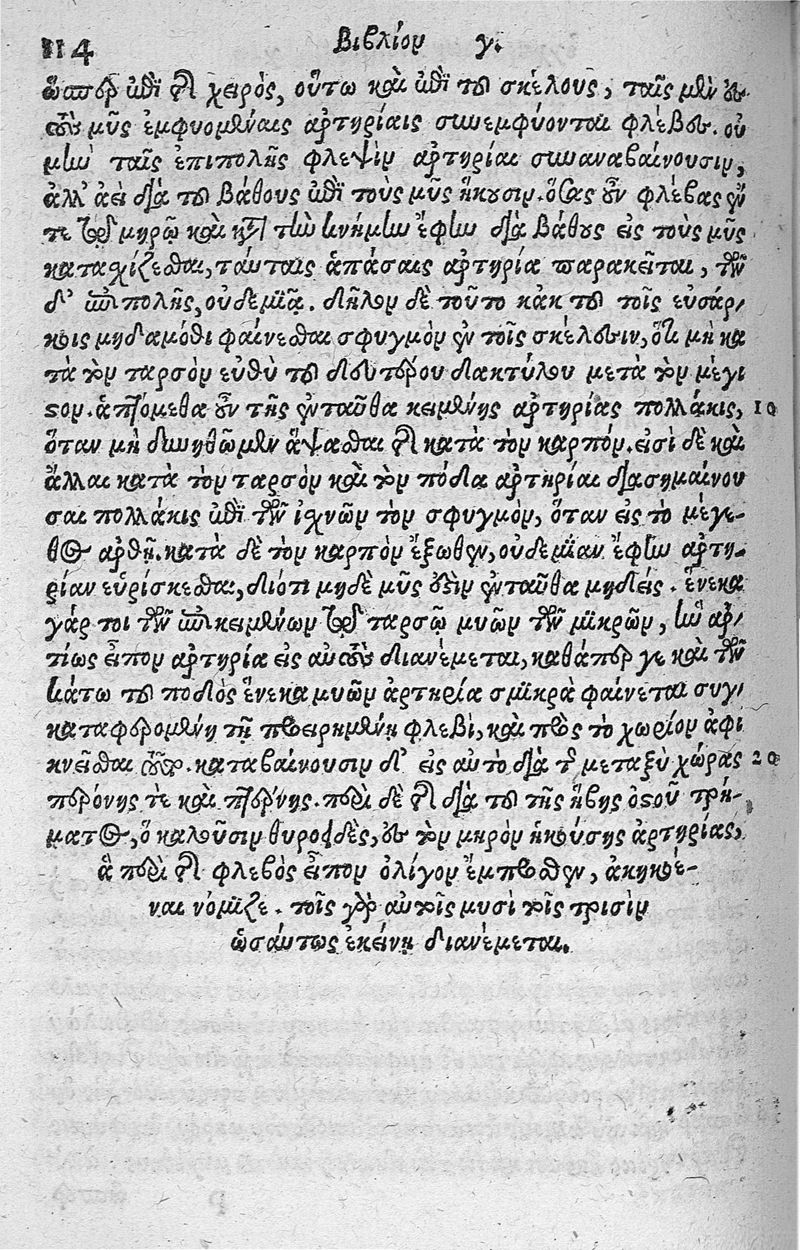 114 Βιβλίον γ.
ὥσπερ ἐπὶ τῆς χειρὸς, οὕτω καὶ ἐπὶ τοῦ σκέλους, ταῖς μὲν εἰς
τοὺς μῦς ἐμφυομέναις ἀρτηρίαις συνεμφύονται φλέβες. οὐ
μὴν ταῖς ἐπιπολῆς φλεψὶν ἀρτηρίαι συναναβαίνουσιν,
ἀλλ' ἀεὶ διὰ τοῦ βάθους ἐπὶ τοὺς μῦς ἥκουσιν. ὅσας οὖν φλέβας ἔν
τε τῷ μηρῷ καὶ κατὰ τὴν κνήμην ἔφην διὰ βάθους εἰς τοὺς μῦς
κατασχίζεσθαι, ταύταις ἁπάσαις ἀρτηρία παράκειται, τῶν
δ' ἐπιπολῆς, οὐδεμιᾷ. δῆλον δὲ τοῦτο κἀκ τοῦ τοῖς εὐσάρ-
κοις μηδαμόθι φαίνεσθαι σφυγμὸν ἐν τοῖς σκέλεσιν, ὅτι μὴ κα
τὰ τὸν ταρσὸν εὐθὺ τοῦ δευτέρου δακτύλου μετὰ τὸν μέγι
στον. ἁπτόμεθα οὖν τῆς ἐνταῦθα κειμένης ἀρτηρίας πολλάκις, 10
ὅταν μὴ δυνηθῶμεν ἅψασθαι τῆς κατὰ τὸν καρπόν. εἰσὶ δὲ καὶ
ἄλλαι κατὰ τὸν ταρσὸν καὶ τὸν πόδα ἀρτηρίαι διασημαίνου
σαι πολλάκις ἐπὶ τῶν ἰχνῶν τὸν σφυγμὸν, ὅταν εἰς τὸ μέγε-
θος ἀρθῇ. κατὰ δὲ τὸν καρπὸν ἔξωθεν, οὐδεμίαν ἔφην ἀρτη-
ρίαν εὑρίσκεσθαι, διότι μηδὲ μῦς ἐστὶν ἐνταῦθα μηδείς. ἕνεκα
γάρ τοι τῶν ἐπικειμένων τῷ ταρσῷ μυῶν τῶν μικρῶν, ἣν ἀρ-
τίως εἶπον ἀρτηρία εἰς αὐτοὺς διανέμεται, καθάπερ γε καὶ τῶν
κάτω τοῦ ποδὸς ἕνεκα μυῶν ἀρτηρία σμικρὰ φαίνεται συγ-
καταφερομένη τῇ προειρημένῃ φλεβὶ, καὶ πρὸς τὸ χωρίον ἀφι
κνεῖσθαι τοῦτο. καταβαίνουσιν δ' εἰς αὐτὸ διὰ τῆς μεταξὺ χώρας 20
περόνης τε καὶ πτέρνης. περὶ δὲ τῆς διὰ τοῦ τῆς ἥβης ὀστοῦ τρή-
ματος, ὃ καλοῦσιν θυροειδὲς, εἰς τὸν μηρὸν ἡκούσης ἀρτηρίας,
ἃ περὶ τῆς φλεβὸς εἶπον ὀλίγον ἔμπροσθεν, ἀκηκοέ-
ναι νόμιζε. τοῖς γὰρ αὐτοῖς μυσὶ τοῖς τρισὶν
ὡσαύτως ἐκείνῃ διανέμεται.